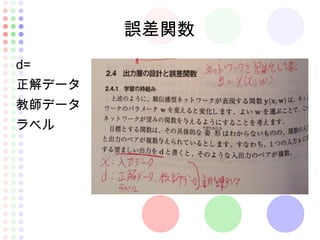 誤差関数
d=
正解データ
教師データ
ラベル
ネットワークを
y=y(x;w)
2.4 出力層の設計と誤差関数
2.4.1 学習の枠組み
上述のように，順伝播型ネットワークが表現する関数y(x;w)は，ネ
ットワークのパラメータwを変えると変化します．よいwを選ぶことで，こ
ネットワークが望みの関数を与えるようにすることを考えます．
目標とする関数は，その具体的な形はわからないものの，関数の入
と出力のペアが複数，与えられているとします．すなわち，1つの入力xに
する望ましい出力をdと書くと，そのような入出力のペアが複数，
x：入力データ
d：正解データ、教師データ
ラベル